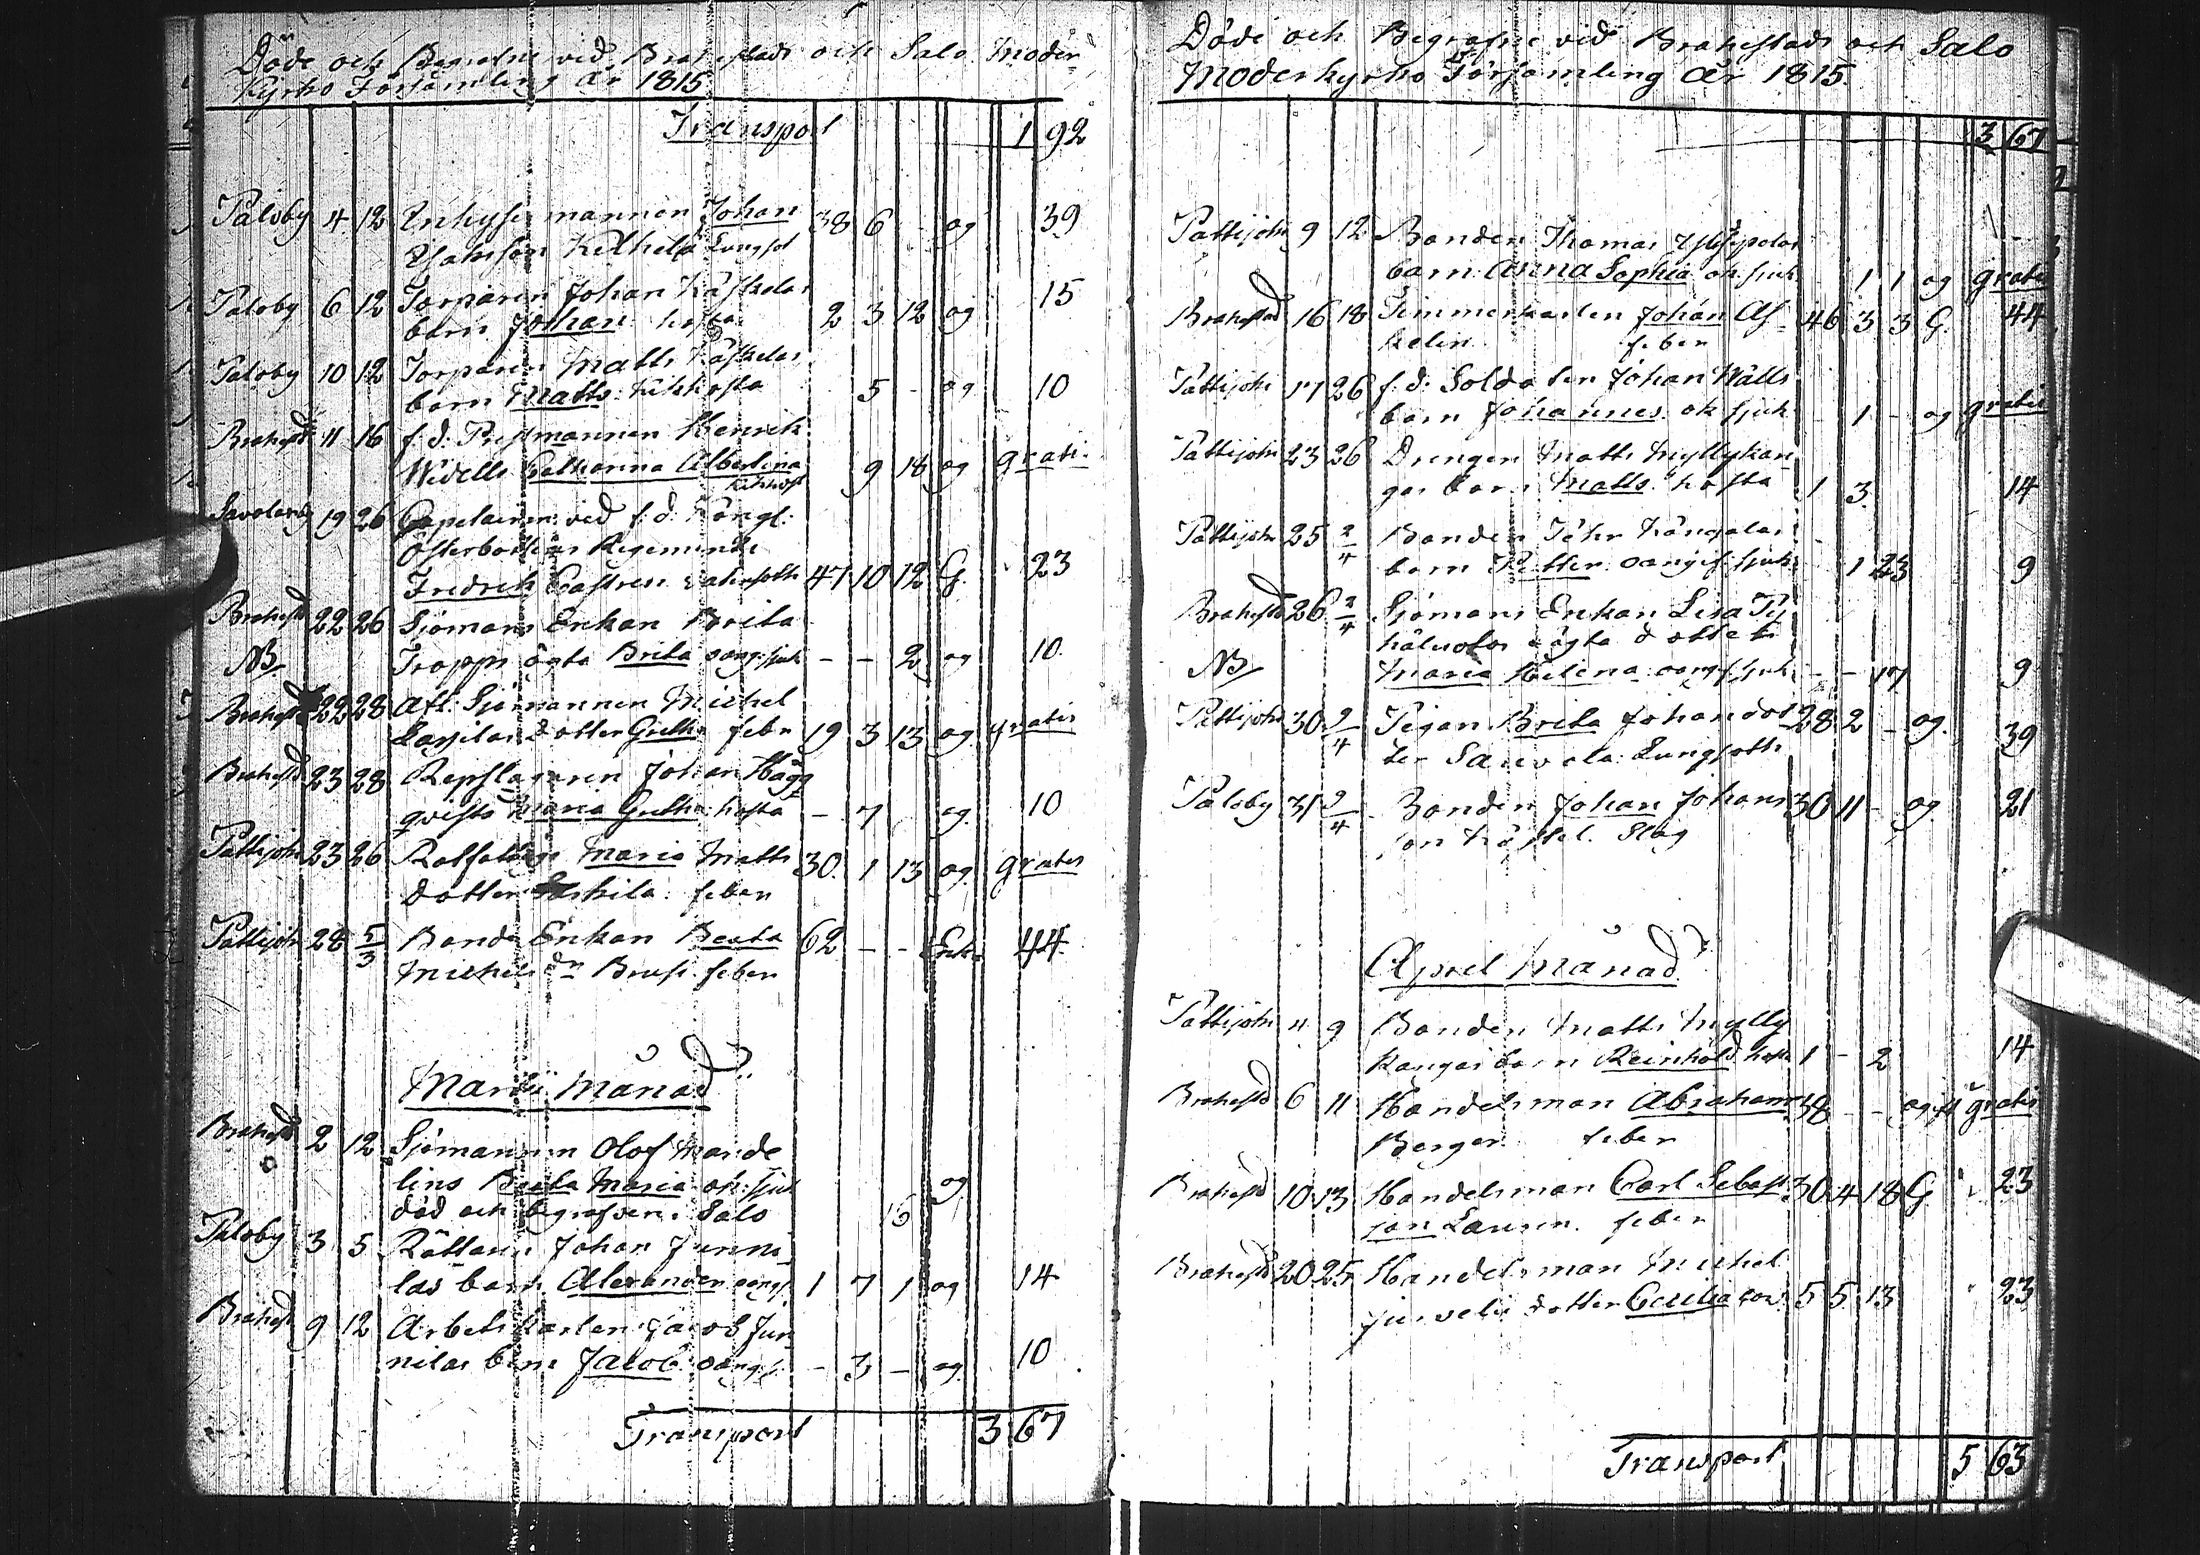 Döde och Begrafne vid Brahestads och Salo Moder
Kyrko Församling år 1815
Transport 1 92
Paloby 4 12 Inhyses mannen Johan 38 6 - og 39
Kelhelä Lungsot
Paloby 6 12 Torparen Johan
barn Johan hosta 2 3 12 og 15
Paloby 10 12 Torparen Matts
barn Matts kikhosta 5 - og 10
Brahestd 11 16 f. d. Henrik
Widells Catharina Albertina 9 18 og gratis
kikhost
Savolax 19 26 vid f. d. Kongl.
Österbottens Regemente
Fredrich Castren 47 10 12 G. 23
Brahestd 22 26 Sjömans Enkan Brita
NB Tropps oägta Brita oang: sjuk - - 2 og 10
Brahestd 22 28 Afl. Sjömannen Michel
dotter Greth feber 19 3 13 og gratis
Brahestd 23 28 Repslagaren Johan Hägg
qvists Maria Gretha hosta - 7 og 10
Pattijoki 23 26 Maria Matts
dotter feber 30 1 13 og gratis
Pattijoki 28 5/3 Bonde Enkan Beata 62 - - Enk. 44
Michels dr feber
Martii Månad
Brahestd 2 12 Sjömannen Olof Mande
lins Beata Maria ok: sjuk og
död och begrafven i Salo
Paloby 3 5 Johan Junni
las barn Alexander oangf 1 7 1 og 14
Brahestd 9 12 Arbetskarlen Jacob Jun
nilas barn Jacob oangf. - 3 - og 10
Transport 3 67
Döde och Begrafne vid Brahestads och Salo
Moderkyrko Församling år 1815.
3 67
Pattijoki 9 12 Bonden Thomas
barn Anna Sophia ok. sjuk 1 1 og gratis
Brahestad 16 18 Timmerkarlen Johan Af 46 3 3 G. 44
helin feber
Pattijoki 17 26 f. d. Soldaten Johan Walls
barn Johannes ok sjuk 1 - og gratis
Pattijoki 23 26 Drengen Matts Myllykan
gas barn Matts hosta 1 3 14
Pattijoki 25 2/4 Bonden
barn Petter oangif. sjuk 1 23 9
Brahestd 26 2/4 Sjömans Enkan Lisa
oägta dotter
NB Maria Helena oangf. sjuk - - 17 9
Pattijoki 30 2/4 Pigan Brita Johansdot 28 2 - og. 39
ter Lungsott
Paloby 31 2/4 Bonden Johan Johans 30 11 - og 21
son Slag
April Månad
Pattijoki 4 9 Bonden Matts Mylly
kangas barn Reinhold host 1 - 2 14
Brahestd 6 11 Handelsman Abraham 38 - - ogift gratis
Berger feber
Brahestd 10 13 Handelsman Carl Sebast 30 4 18 G 23
ian Lauren. feber
Brahestd 20 25 Handelsman Michel
dotter Cecilia 5 5 13 23
Transport 5 63